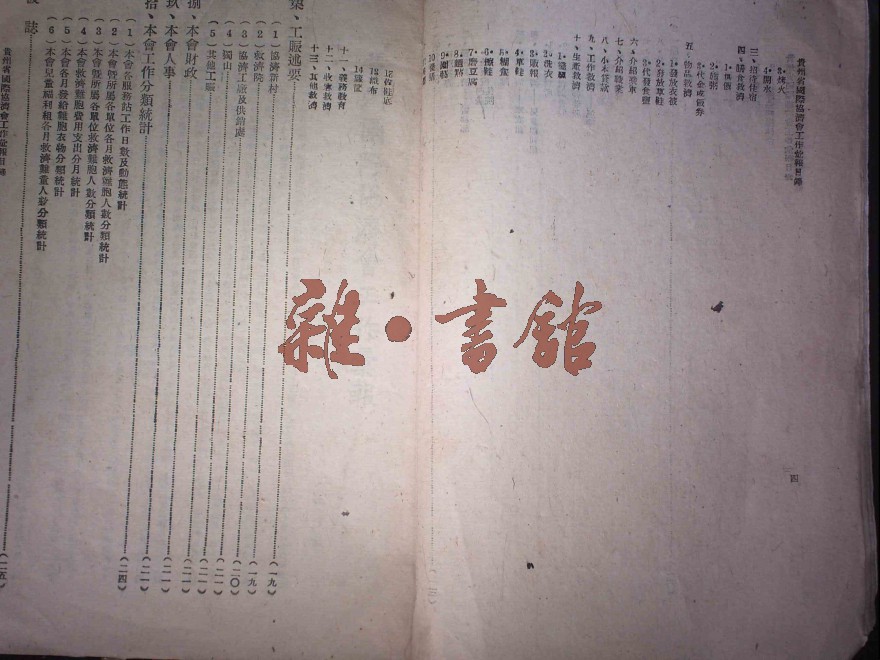 貴州省國際協濟會工作彙報目錄
三、招待住宿
四、膳食救濟
2・施粥
五、物品救濟
1・發放衣被
2・發放草鞋
3・代發食鹽
六、介紹乘車
七、介紹職業
八、小本貸款
九、工作救濟
十、生產救濟
1・縫紉
2・洗衣
3・販報
4・草鞋
7・磨豆腐
8・麵粉
13・織布
十一、義務教育
十二、收寒救濟
十三、其他救濟
柒、工賑述要
（１）協濟新村（一九）
（２）救濟院（一九）
（３）協濟工廠及供銷處（二〇）
（４）獨山（二一）
（５）其他工賑（二一）
捌、本會財政（二一）
玖、本會人事（二一）
拾、本會工作分類統計（二四）
（１）本會各服務站工作日數及動態統計
（２）本會暨所屬各單位各月救濟難胞人數分類統計
（３）本會暨所屬各單位救濟難胞人數分類統計
（４）本會救濟難胞費用支出分月統計
（５）本會各月發給難胞衣物分類統計
（６）本會兒童福利組各月救濟難童人數分類統計
後誌（二五）
貴州省國際協濟會工作彙報目錄
四
雜・書館